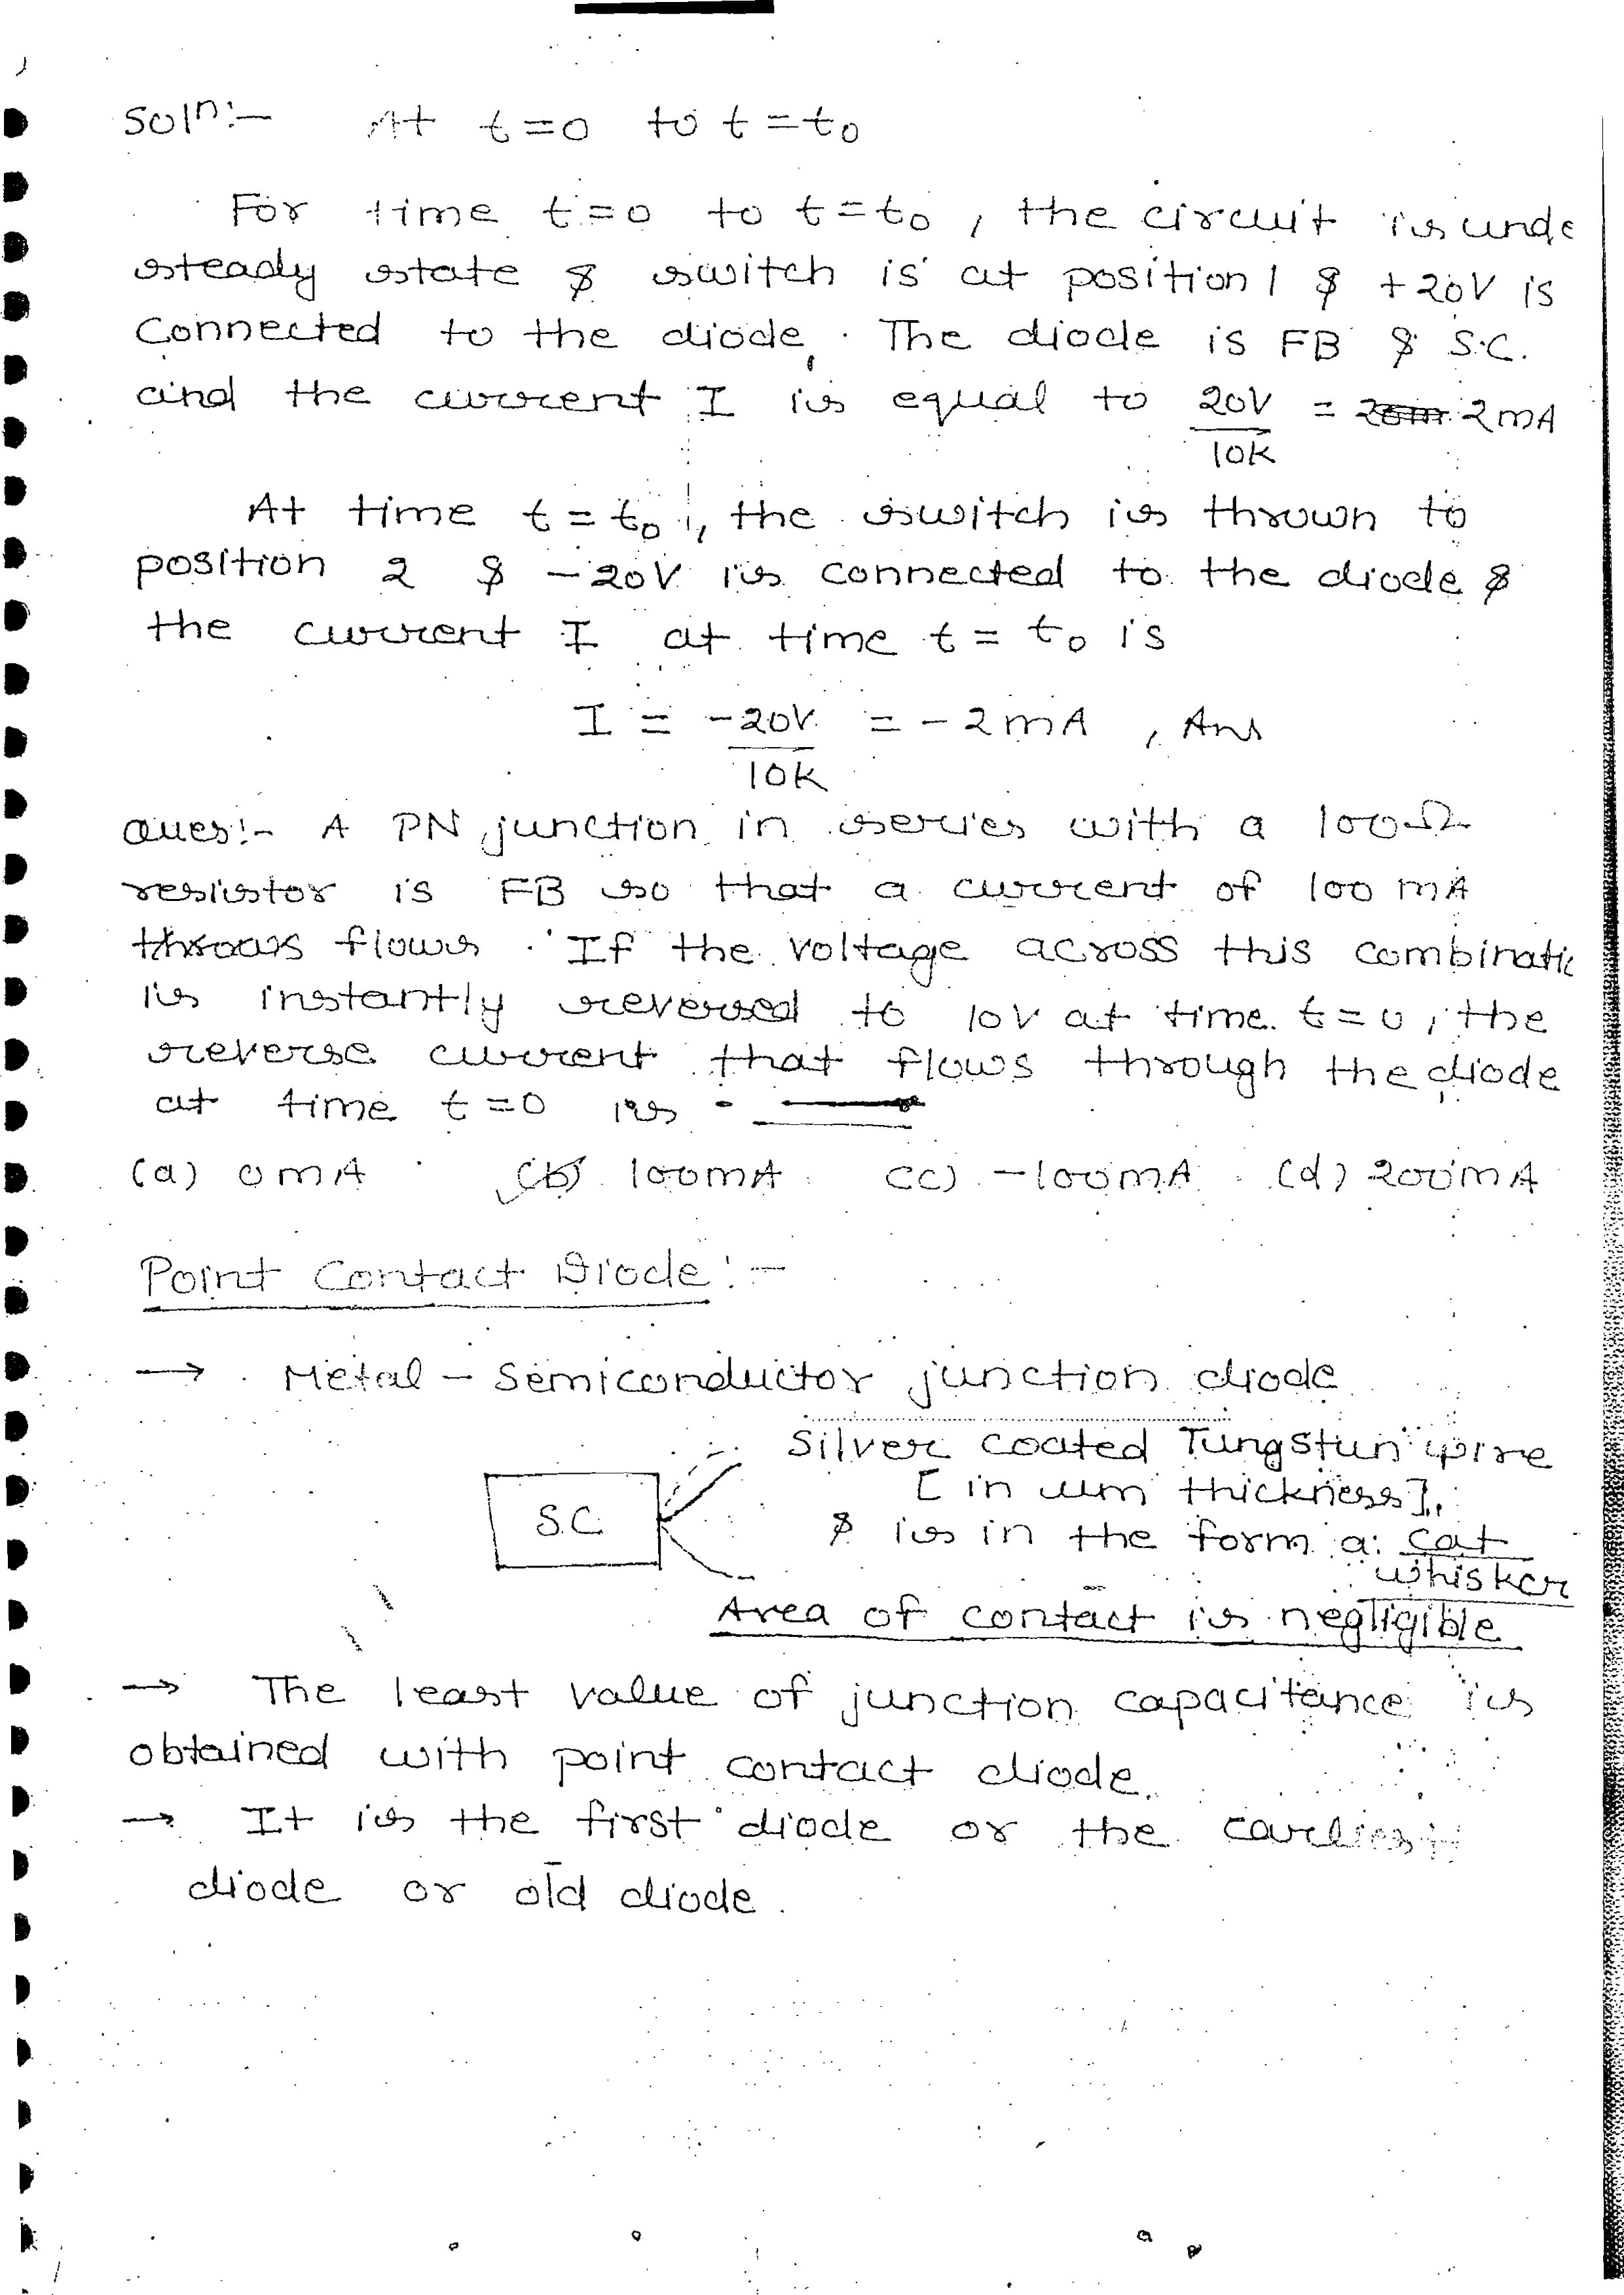 Solⁿ:- At t=0 to t=t₀
For time t=0 to t=t₀, the circuit is unde
steady state & switch is at position 1 & +20V is
connected to the diode. The diode is FB & S.C.
and the current I is equal to 20V/10K = 2mA
At time t=t₀, the switch is thrown to
position 2 & -20V is connected to the diode &
the current I at time t=t₀ is
I = -20V/10K = -2mA, Ans
Ques:- A PN junction in series with a 100Ω
resistor is FB so that a current of 100 mA
flows. If the voltage across this combinatic
is instantly reversed to 10V at time t=0, the
reverse current that flows through the diode
at time t=0 is
(a) 0mA (b) 100mA (c) -100mA (d) 200mA
Point Contact Diode:-
→ Metal - Semiconductor junction diode
Silver coated Tungstun wire
[in um thickness],
S.C.
& is in the form a: cat
whisker
Area of contact is negligible
→ The least value of junction capacitance is
obtained with point contact diode.
→ It is the first diode or the earliest
diode or old diode.